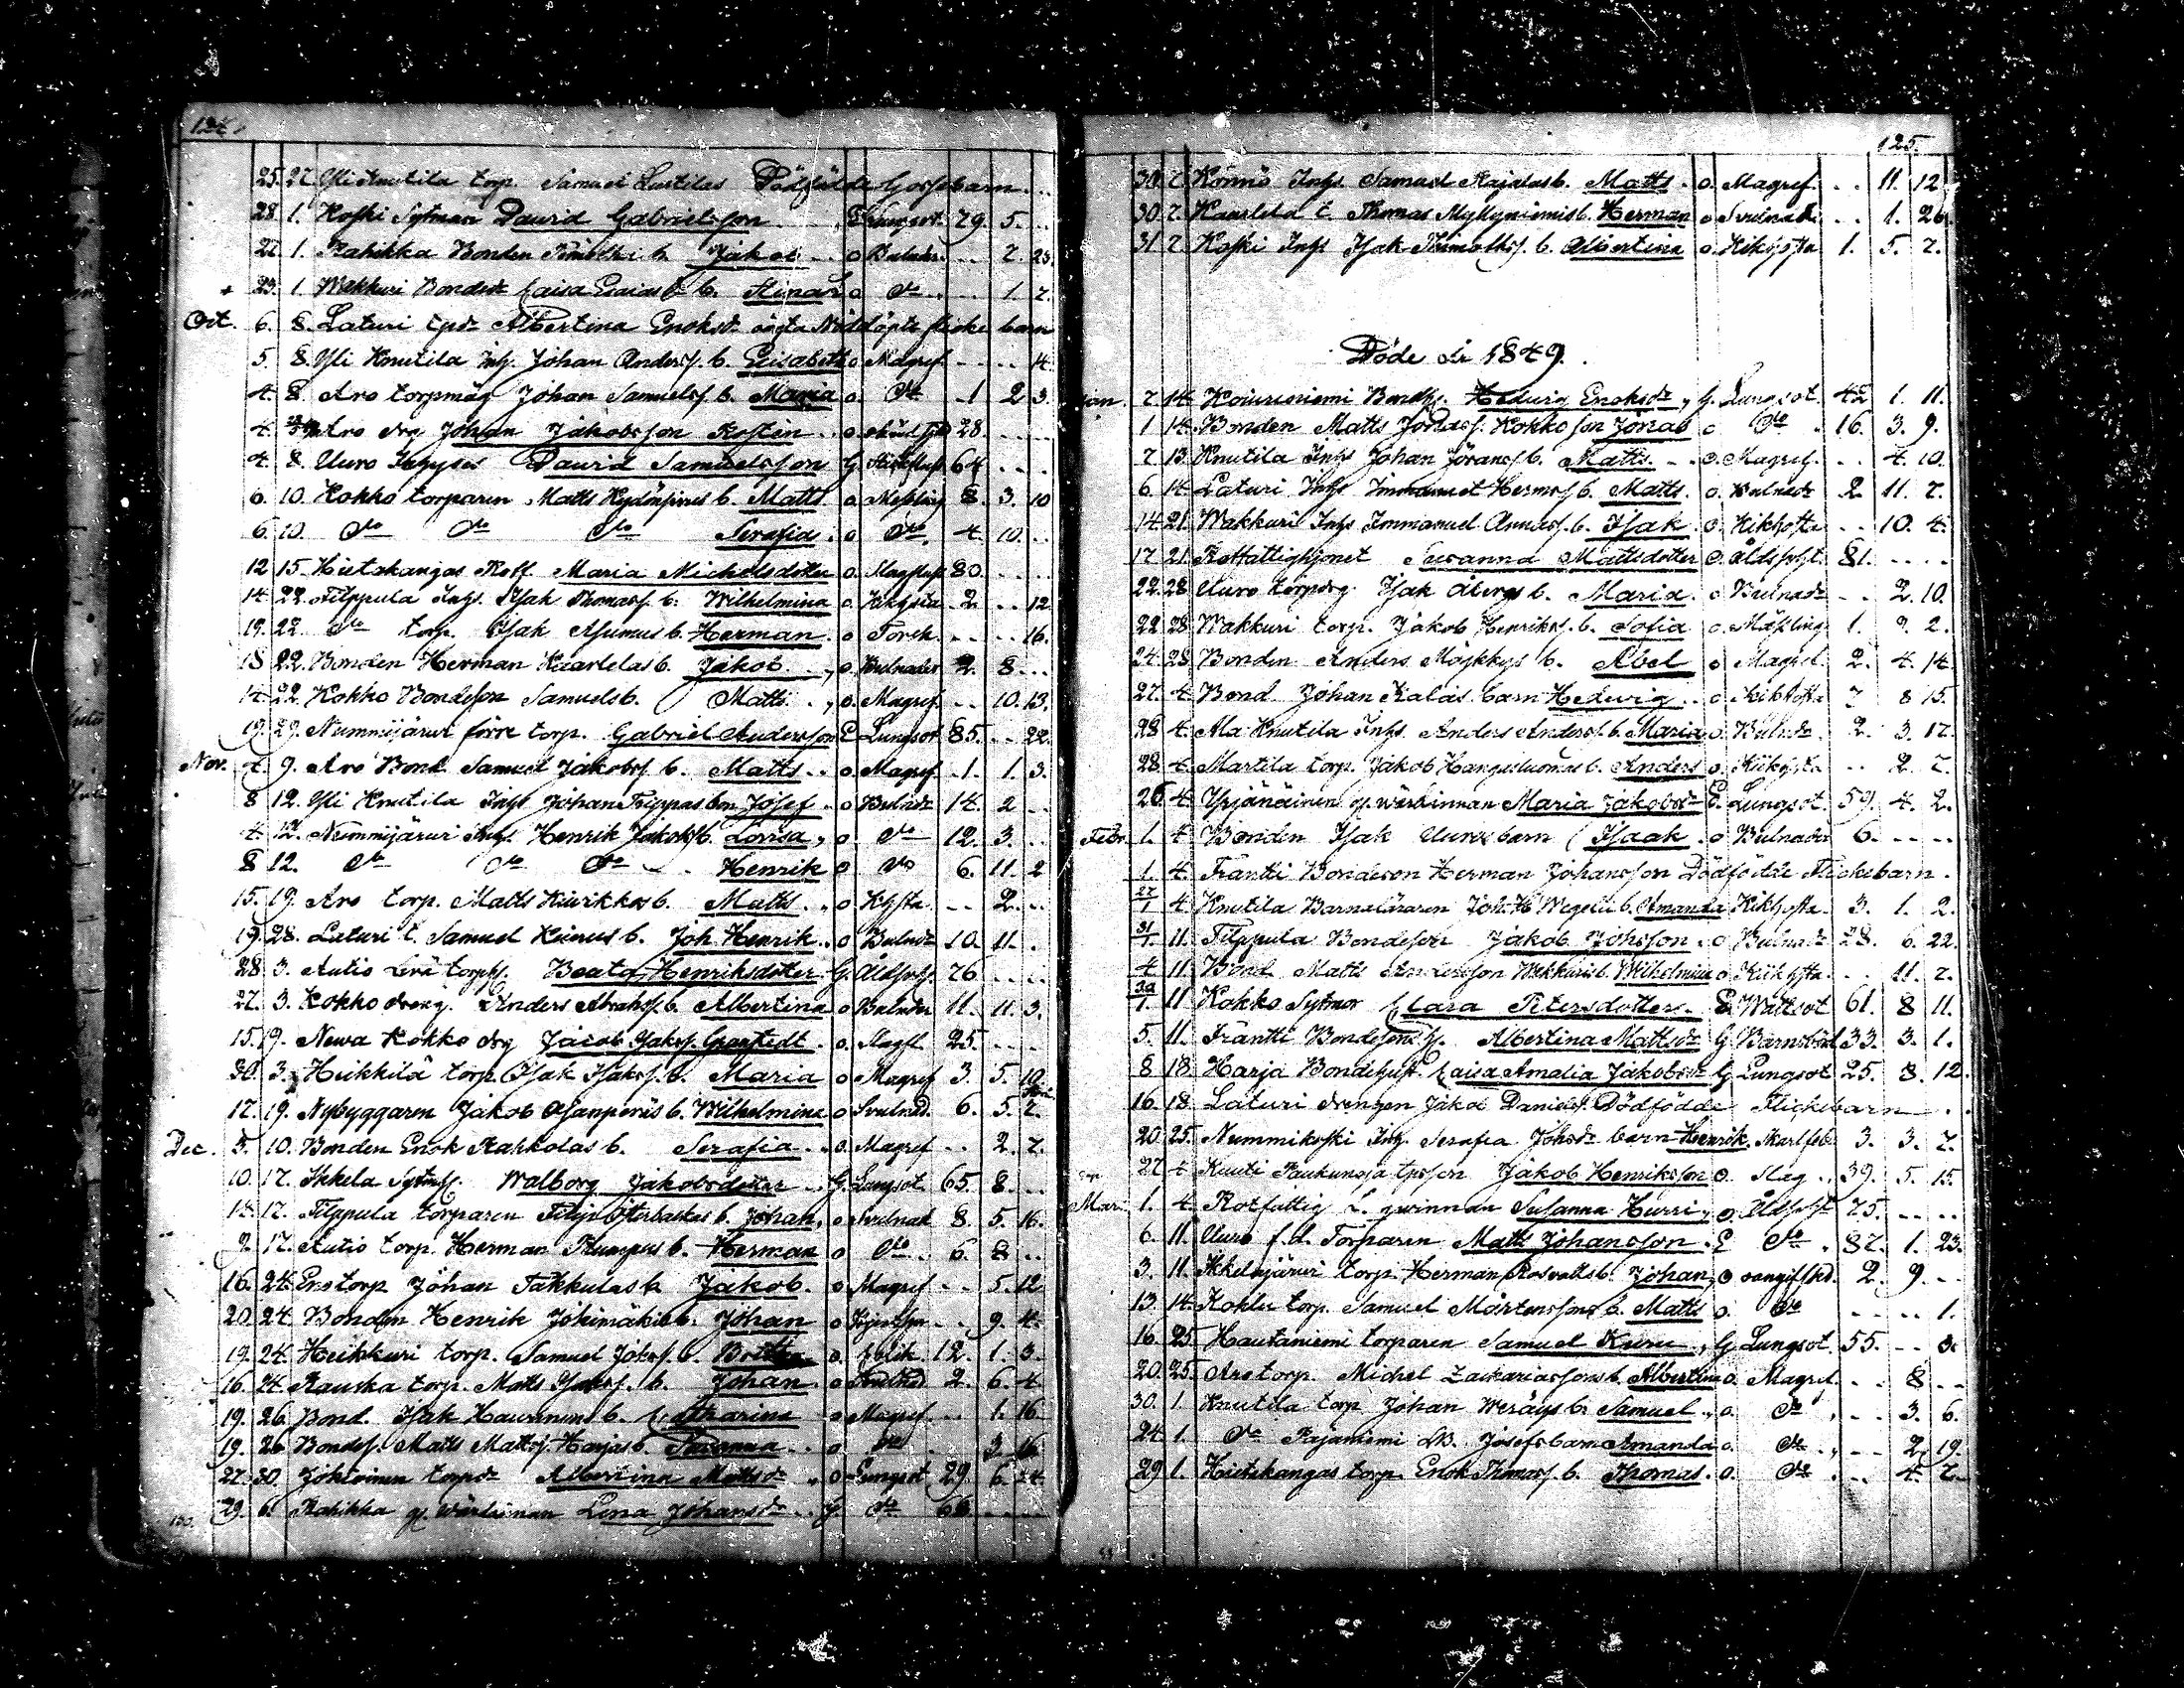 124.
25. 27. Yli Knutila torp. Samuel Lustilas Dödfödde Gossebarn
28. 1. Koski Sytman David Gabrielsson Lungsot. 79. 5.
22. 1. Rahikka Bonden Timothei b. Jakob o Bulnader 2. 23.
23. 1. Wekkuri Bondedr Caisa Esaias b. Stina o Do 1. 2.
Oct. 6. 8. Laturi tpdr Albertina Enoksdr oägta Nöddöpte flicke barn
5. 8. Yli Knutila Inhs. Johan Anderss. b. Elisabeth o Magref. 14.
4. 8. Aro torpmåg Johan Samuelss. b. Maria o. Do 1 2 3.
4. Aro drg Johan Jakobsson Kosten o. 28.
4. 8. Uuro Inhyses David Samuelsson G 64
6. 10. Kokko torparen Matts b. Matts o. Messling 8. 3. 10
6. 10. Do Do Do Serafia o Do. 4. 10.
12 15. Hietakangas Maria Michelsdotter o. Slagfluss 80.
14. 22. Filppula Inhs. Isak Thomass. b. Wilhelmina o. Kikhosta 2 12.
19. 22. Do torp. Isak Asumus b. Herman o Torsk. 16.
18 22. Bonden Herman Kaarlelas b. Jakob o. Bulnader 2. 8
14. 22. Kokko Bondeson Samuels b. Matti o. Magref. 10. 13.
19. 29. Nummijärvi förre torp. Gabriel Andersson E Lungsot 85. 22.
Nov. 4. 9. Aro Bond. Samuel Jakobss. b. Matts o. Magref 1. 1. 3.
8 12. Yli Knutila Inhs Johan Trippas son Josef o Bulnadr 14. 2
4. 12. Nummijärvi Inhs. Henrik Jakobss b. Lovisa o Do 12. 3.
8 12. Do Do Do Henrik o Do 6. 11. 2
15. 19. Aro torp. Matts Kiwikkos b. Matts o Khosta 2.
19. 28. Laturi t. Samuel b. Joh. Henrik o Bulnadr 10. 11.
28. 3. Autio torphs. Beata Henriksdotter G. Åldersvh. 76
27. 3. Kokko dreng. Anders Abrahss. b. Albertina o Bulnader 11. 11. 3.
15. 19. Newa Kokko drg Jacob Jakss. o. Slagfl. 25.
30. 3. Heikkilä torp. Isak Isakss. b. Maria o Magref 3. 5. 10
17. 19. Nybyggaren Jakob b. Wilhelmina o Svulnad. 6. 5. 2.
Dec. 5. 10. Bonden Enok Rahkolas b. Serafia o. Magref 2. 2.
10. 17. Ikkela Sytmhs. Walborg Jakobsdotter G. Lungsot 65. 8.
14. 17. Filppula torparen Filip Österbackas b. Johan o Svulnad 8. 5. 16.
9. 17. Autio torp. Herman Rumpus b. Herman o Do 6. 8
16. 24. torp Johan Takkulas b. Jakob o Magref 5. 12
20. 24. Bonden Henrik Jokimäkis b. Johan o 9. 4.
19. 24. Heikkuri torp. Samuel Jakss. b. o. Colik 12. 1. 3.
16. 24. Rauska torp. Matts b. Johan o 2. 6. 4
19. 26 Bond. Isak b. Catharina o Magref 1. 16
19. 26 Bondes. Matts Mattss. Harjas b. Susanna o Do 3 16
27. 30. torpdr Albertina Mattsdr o Lungsot 29. 6. 24.
29. 6. Rahikka gl. wärdinnan Lena Johansdr G. Do 66
125.
30. 2. Könnö Inhs Samuel Rajalas b. Matts o. Magref. 11. 12
30. 2. Kaarlela t. Thomas Myllyniemis b. Herman o Svulnad. 1. 26.
31 2. Koski Inhs Isak Thimothss. b. Albertina o. Kikhosta 1. 5. 2.
Döde år 1849.
Jan. 7 14. Koivuniemi Bondhs. Hedvig Enoksdr G. Lungsot 42 1. 11.
1 14. Bonden Matts Jonass. Kokko son Jonas o Do 16. 3. 9.
7 13. Knutila Inhs Johan Jöranss b. Matts o. Magref. 4. 10.
6. 14. Laturi Inhs Immanuel Hermss b. Matts o. Bulnadr 2. 11. 2.
14. 21. Wakkuri Inhs Immanuel b. Isak o. Kikhosta 10. 4.
17 21. Rotfattighjonet Susanna Mattsdotter o. åldersvht. 81.
22. 28. Uuro torpdrg. Isak Åbergs b. Maria o Bulnadr 2. 10.
22. 28. Wakkuri torp. Jakob Henrikss. b. Sofia o. Mässling 1. 9. 2.
24. 28. Bonden Anders Mäykkys b. Abel o Magref. 2. 4. 14.
27. 4. Bond Johan Ralas barn Hedvig o. Kikhosta 7 8 15.
28 4. Ala Knutila Inhs Anders Anderss. b. Maria o. Bulnadr. 2. 3. 17.
28. 4. Martila torp. Jakob Hangasluomas b. Anders o. Kikhosta 2. 2.
26 4. Yrjänäinen gl wärdinnan Maria Jakobsdr E. Lungsot. 59. 4. 2.
Febr. 1. 4. Bonden Isak Uuros barn Isaak o Bulnader 6.
1. 4. Frantti Bondeson Herman Johansson Dödfödde Flickebarn.
27/1 4. Knutila Barnaläraren Joh. H. Wegelii b. Amanda Kikhosta. 3. 1. 2.
31/1 11. Filppula Bondeson Jakob Johsson o Bulnadr 28. 6. 22.
4 11. Bond Matts Andersson Wekkuris b. Wilhelmina o Kikhosta 11. 2.
30/1 11 Kokko Sytmor Clara Petersdotter E Wattsot 61. 8 11.
5. 11. Frantti Bondesons h. Albertina Mattsdr G Barnsbörd 33. 3. 1.
8 18 Harja Bondehust. Caisa Amalia Jakobsdr G Lungsot 25. 8. 12.
16. 18. Laturi drengen Jakob Danielss. Dödfödde Flickebarn
20. 25. Nummikoski Inh. Serafia Johsdr barn Henrik Skarlfeb. 3. 3. 7.
27 4 Kuuti Raukunoja tpsson Jakob Henriksson o. Slag 39. 5. 15.
Mar. 1. 4. Rotfattig qwinnan Susanna Hurri o. Åldersvht 75.
6. 11. Uuro f.d. Torparen Matts Johansson E Do 87. 1. 23.
3. 11. Ikkelajärvi torp. Herman Rosvatts b. Johan o oangifven 2. 9.
13 14. Kohlu torp. Samuel Mårtenssons b. Matts o. Do 1.
16. 25 Hautaniemi torparen Samuel Kuru G Lungsot. 55. 3.
20. 25. Aro torp. Michel Zachariassons b. Albertina o. Magref. 8
30. 1. Knutila torp Johan b. Samuel o. Do 3. 6.
24. 1. Do Rajaniemi Josefs barn Amanda o. Do 2. 19.
29 1. Hietakangas torp. Enok Thomass. b. Thomas o. Do 4. 2